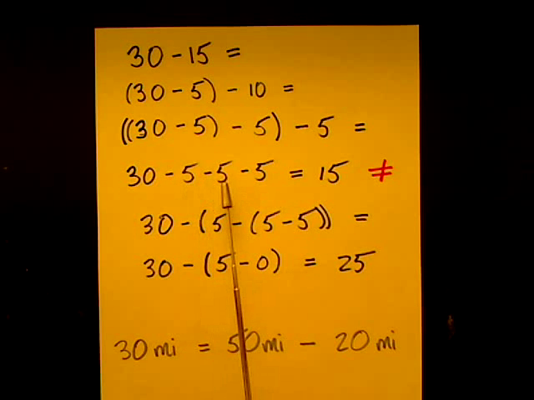 30 - 15 =
(30 - 5) - 10 =
((30 - 5) - 5) - 5 =
30 - 5 - 5 - 5 = 15 ≠
30 - (5 - (5 - 5)) =
30 - (5 - 0) = 25
30 mi = 50 mi - 20 mi